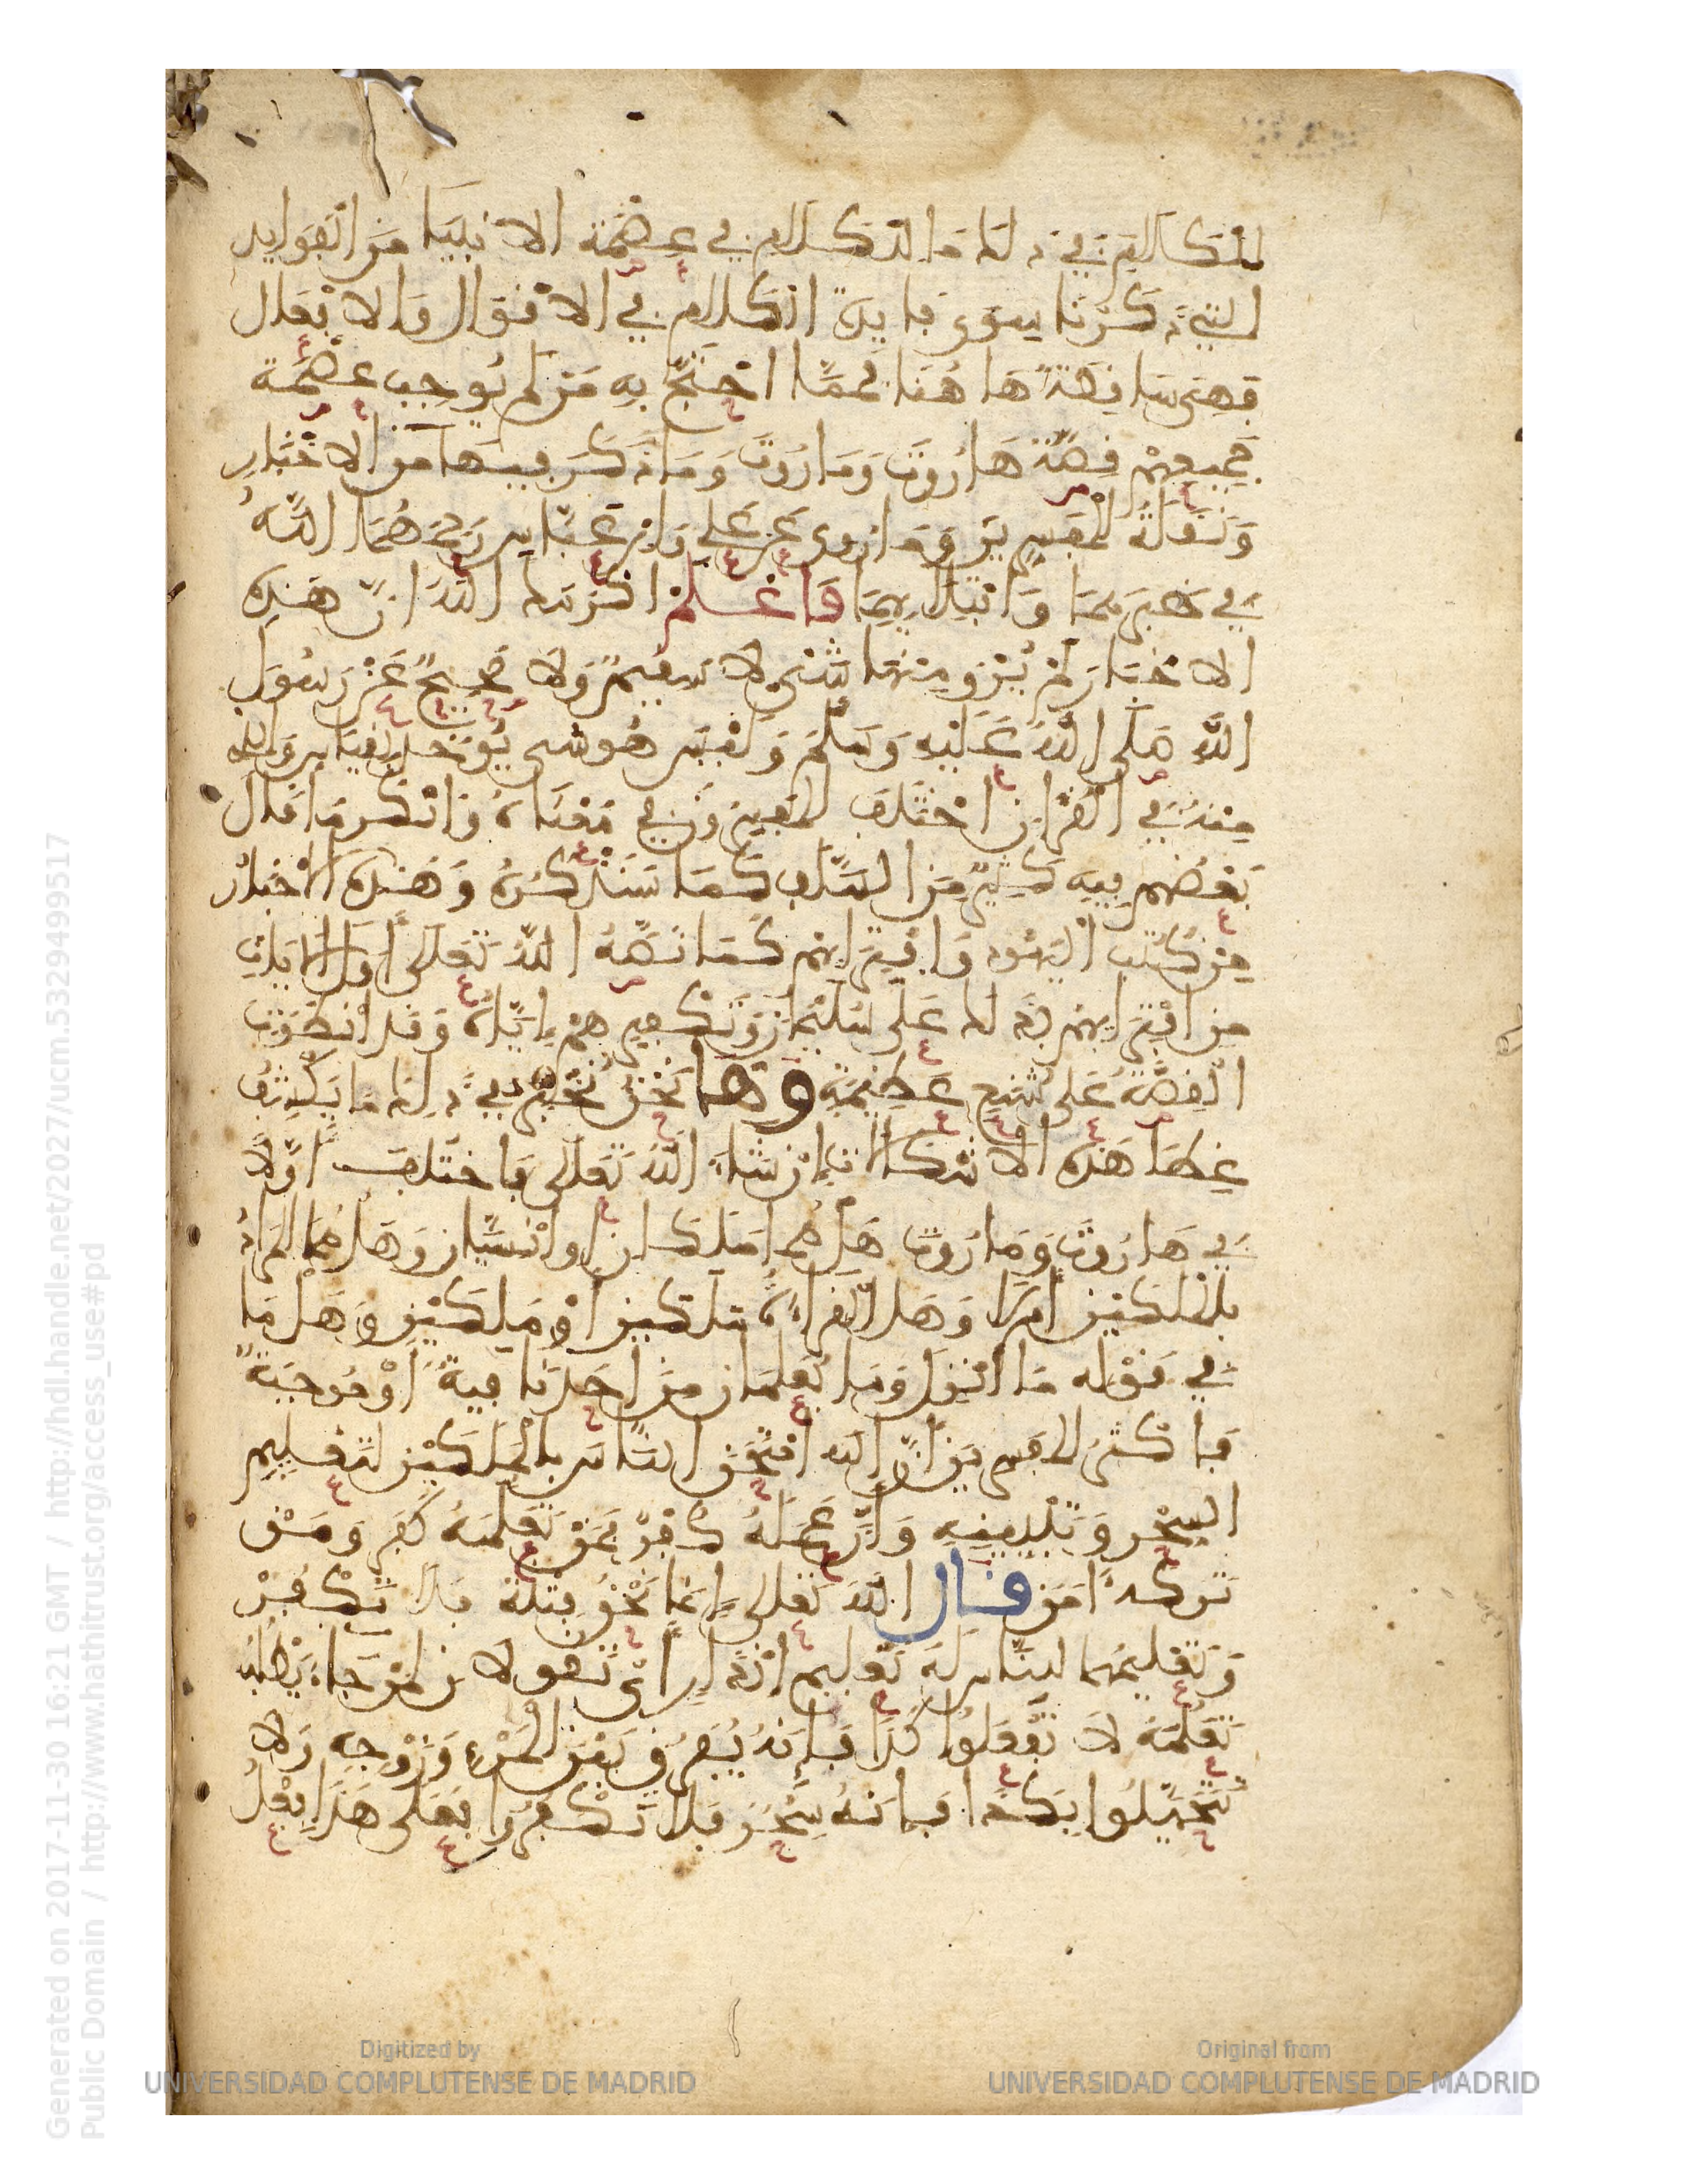 المتكلم في ذلك والكلام في عصمة الانبيا من الفوايد
التي ذكرنا سوى فايدة الكلام في الاقوال والافعال
فهي ساقطة هاهنا فمما احتج به من لم يوجب عصمة
جميعهم قصة هاروت وماروت وما ذكر فيها من الاخبار
ونقلة المفسرين وما روي عن علي وابن عباس رحمهما الله
في خبرهما وابتلايهما فاعلم اكرمك الله ان هذه
الاخبار لم يرو منها شيء لا سقيم ولا صحيح عن رسول
الله صلى الله عليه وسلم وليس هو شي يوخذ بقياس والذي
منه في القران اختلف المفسرون في معناه وانكر ما قال
بعضهم فيه كثير من السلف كما سنذكره وهذه الاخبار
من كتب اليهود وافترايهم كما نصه الله تعالى اول الايات
من افترايهم بذلك على سليمان وتكفيرهم اياه وقد انطوت
القصة على شنع عظيمة وها نحن نحبر في ذلك ما يكشف
غطا هذه الاشكالات ان شاء الله تعالى فاختلف اولا
في هاروت وماروت هل هما ملكان او انسيان وهل هما المراد
بالملكين ام لا وهل القراءة ملكين او ملكين وهل ما
في قوله ما انزل وما يعلمان من احد نافية او موجبة
فاكثر المفسرين ان الله امتحن الناس بالملكين لتعليم
السحر وتبيينه وان عمله كفر فمن تعلمه كفر ومن
تركه امن قال الله تعالى انما نحن فتنة فلا تكفر
وتعليمهما الناس له تعليم انذار اي يقولان لمن جاء يطلب
تعلمه لا تفعلوا كذا فانه يفرق بين المرء وزوجه ولا
تتخيلوا بكذا فانه سحر فلا تكفروا فعلى هذا فعل
Generated on 2017-11-30 16:21 GMT / http://hdl.handle.net/2027/ucm.5329499517
Public Domain / http://www.hathitrust.org/access_use#pd
Digitized by
UNIVERSIDAD COMPLUTENSE DE MADRID
Original from
UNIVERSIDAD COMPLUTENSE DE MADRID